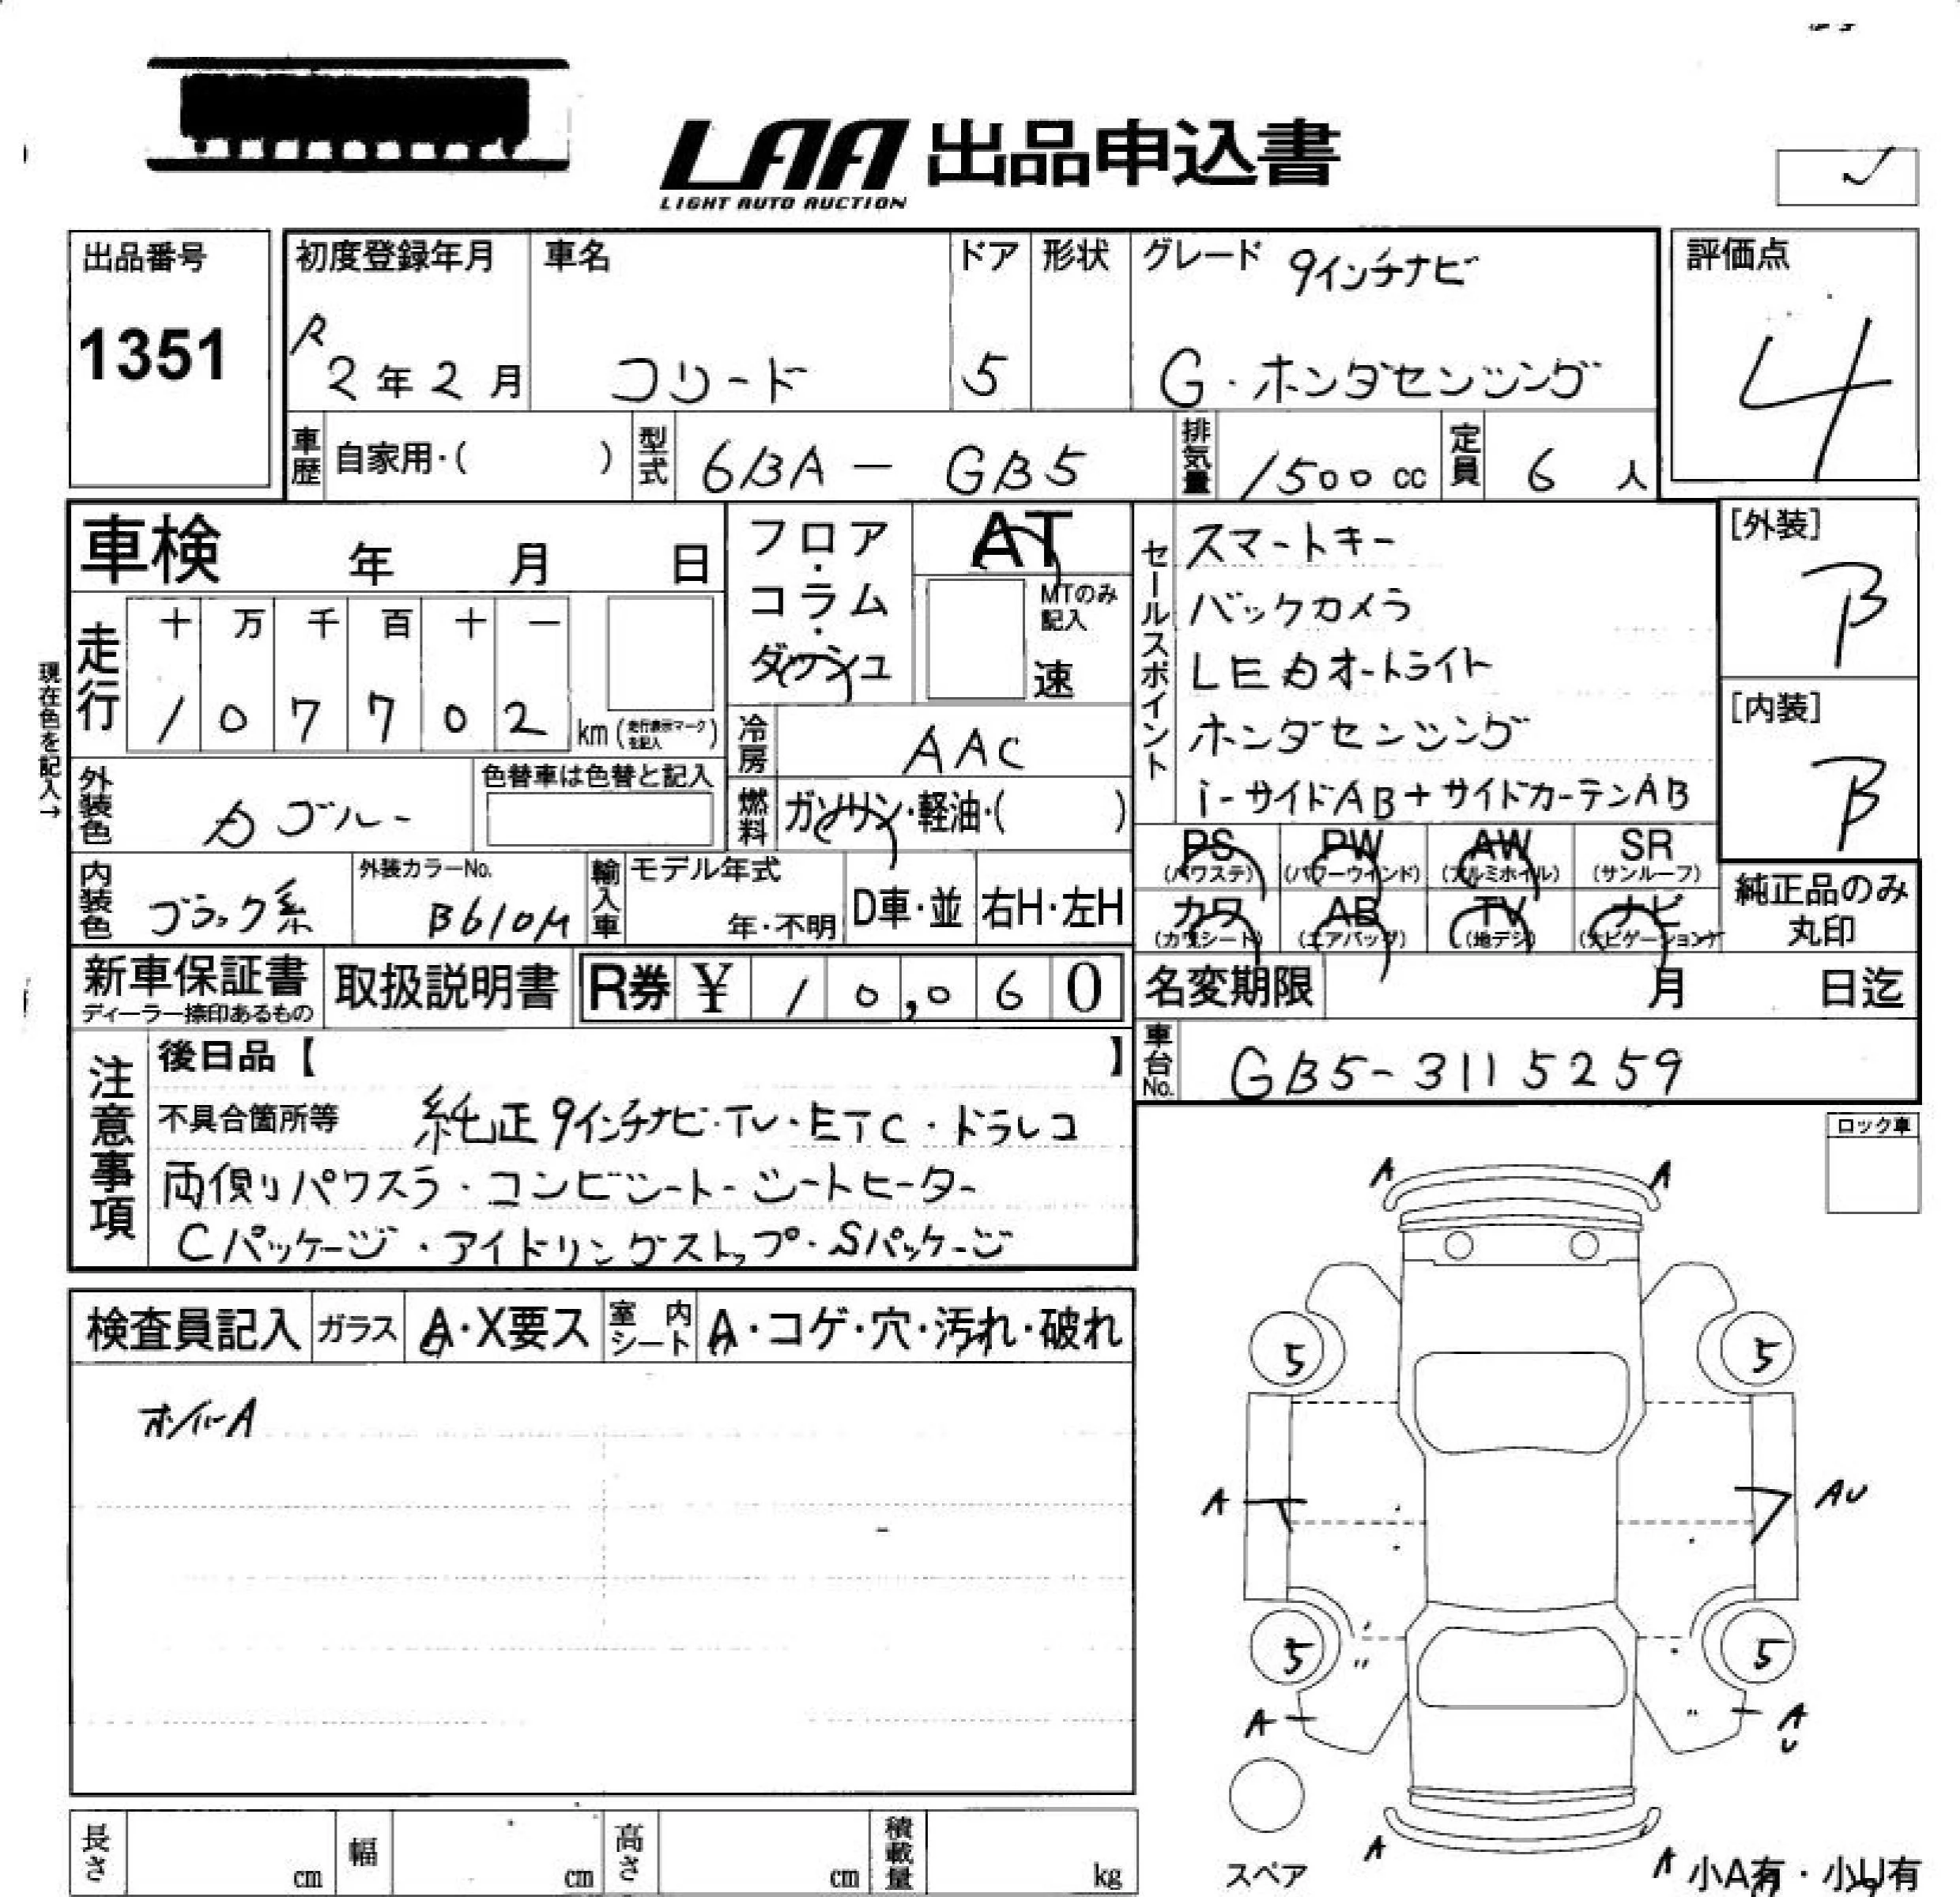 LAA 出品申込書
LIGHT AUTO AUCTION
出品番号
1351
初度登録年月
R 2年2月
車名
フリード
ドア
5
形状
グレード 9インチナビ
G・ホンダセンシング
評価点
4
車歴 自家用・( )
型式 6BA － GB5
排気量 1500 cc
定員 6 人
車検 年 月 日
フロア・コラム・ダッシュ
AT
MTのみ記入
速
セールスポイント
スマートキー
バックカメラ
LEDオートライト
ホンダセンシング
i-サイドAB+サイドカーテンAB
[外装]
B
[内装]
B
現在色を記入→
走行
十 万 千 百 十 一
1 0 7 7 0 2 km (走行表示マークを記入)
冷房 AAC
外装色
ブルー
色替車は色替と記入
燃料 ガソリン・軽油・( )
PS (パワステ)
PW (パワーウインド)
AW (アルミホイル)
SR (サンルーフ)
カワ (カワシート)
AB (エアバッグ)
TV (地デジ)
ナビ (ナビゲーション)
純正品のみ丸印
内装色 ブラック系
外装カラーNo.
B610M
輸入車
モデル年式
年・不明
D車・並
右H・左H
新車保証書
ディーラー捺印あるもの
取扱説明書
R券 ¥ 10,060
名変期限 月 日迄
車台No. GB5-3115259
注意事項
後日品【 】
不具合箇所等 純正9インチナビ・TV・ETC・ドラレコ
両側パワスラ・コンビシート・シートヒーター
Cパッケージ・アイドリングストップ・Sパッケージ
ロック車
検査員記入
ガラス A・X要ス
室内シート A・コゲ・穴・汚れ・破れ
ホイルA
A A
5 5
A AU
5 5
A A
U
A A
スペア
小A有・小U有
長さ cm
幅 cm
高さ cm
積載量 kg